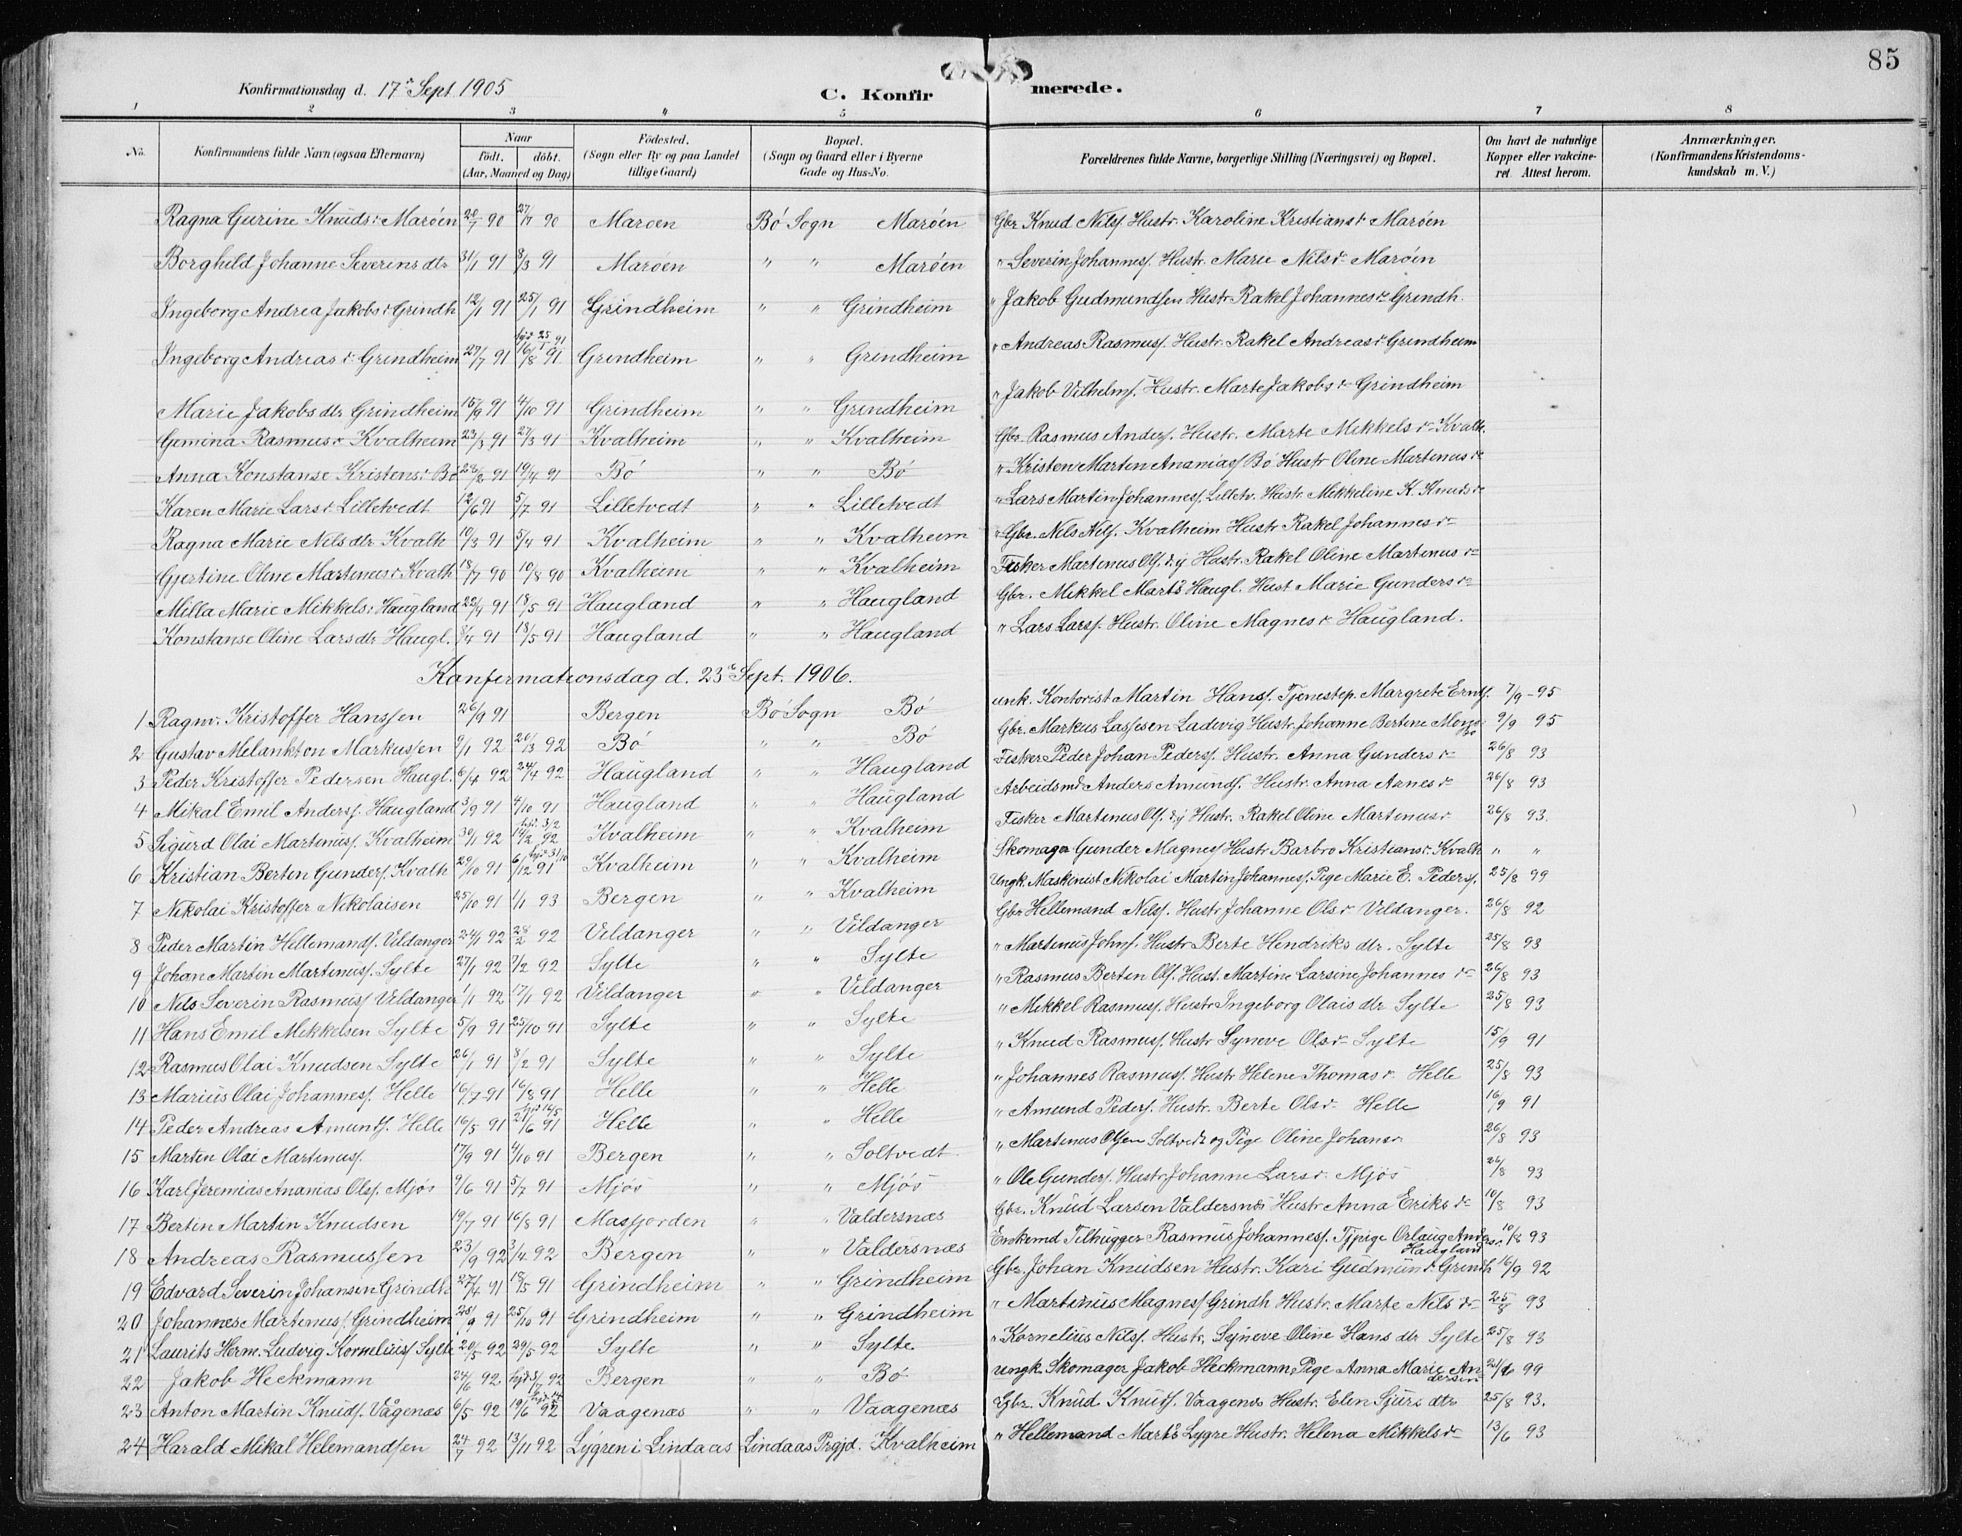 85
Konfirmationsdag d. 17de Sept 1905 C. Konfirmerede.
1 2 3 4 5 6 7 8
No. Konfirmandens fulde Navn (ogsaa Efternavn) Naar født, døbt. (Aar, Maaned og Dag) Fødested. (Sogn eller By og paa Landet tillige Gaard) Bopæl. (Sogn og Gaard eller i Byerne Gade og Hus-No. Forældrenes fulde Navne, borgerlige Stilling (Næringsvei) og Bopæl. Om havt de naturlige Kopper eller vakcineret. Attest herom. Anmærkninger. (Konfirmandens Kristendomskundskab m. V.)
Ragna Gurine Knuds: Marøen 20/7 90 27/7 90 Maroen Bø Sogn Marøen Gbr Knud Nilsf. Hustr. Karoline Kristiansd Marøen
Borghild Johanne Severins dtr 31/1 91 8/3 91 Marøen " " Marøen " Severin Johannesf. Hustr. Marie Nilsd Marøen
Ingeborg Andrea Jakobsd Grindh 12/1 91 25/1 91 Grindheim " " Grindheim " Jakob Gudmundsen Hustr Rakel Johannesd Grindh.
Ingeborg Andreas d. Grindheim 29/7 91 16/8 91 Grindheim " " Grindheim " Andreas Rasmusf. Hustr. Rakel Andreasd Grindheim
Marie Jakobs dtr Grindheim 15/9 91 4/10 91 Grindheim " " Grindheim " Jakob Vilhelmf. Hustr. Marte Jakobsd Grindheim
Gemina Rasmusd Kvalheim 23/3 91 27/3 91 Kvalheim " " Kvalheim Gbr. Rasmus Andersf. Hustr. Marte Mikkelsd Kvalh.
Anna Konstanse Kristensd Bø 28/2 91 19/4 91 Bø " " Bø " Kristen Marten Ananiasf Bø Hustr Oline Martinusd
Karen Marie Larsd. Lilletvedt 12/6 91 5/7 91 Lilletvedt " " Lilletvedt " Lars Martin Johannesf. Lilletv. Hustr Mikkeline K. Knudsd
Ragna Marie Nils dtr Kvalh 10/3 91 5/4 91 Kvalheim " " Kvalheim " Gbr. Nils Nilsf. Kvalheim Hustr Rakel Johannesd
Gjertine Oline Martinusd Kvalh 18/7 90 10/8 90 Kvalheim " " Kvalheim Fisker Martinus Olsf. Hustr. Rakel Oline Martinusd
Milla Marie Mikkelsd Haugland 25/4 91 18/5 91 Haugland " " Haugland Gbr. Mikkel Marts Haugl. Hust Marie Gundersd
Konstanse Oline Lars dtr Haugl. 8/4 91 18/5 91 Haugland " " Haugland " Lars Larsf. Hustr. Oline Magnesd Haugland.
Konfirmationsdag d. 23de Sept. 1906.
1 Ragnv. Kristoffer Hanssen 26/9 91 Bergen Bø Sogn Bø unk. Kontorist Martin Hansf. Tjenestep. Margrete Ernsf. 7/9 - 95
2 Gustav Melankton Markussen 9/1 92 20/3 92 Bø " " Bø Gbr. Markus Lassesen Ladevig Hustr Johanne Bertine Mons Bø 9/9 95
3 Peder Kristoffer Pedersen Haugl. 6/4 92 24/4 92 Haugland " " Haugland Fisker Peder Johan Pedersf. Hustr. Anna Gundersd 26/8 93
4 Mikal Emil Andersf. Haugland 3/9 91 4/10 91 Haugland " " Haugland Arbeidsmd Anders Amundf. Hustr. Anna Arnesd 26/8 93
5 Sigurd Olai Martinusf. Kvalheim 30/1 92 14/2 92 Kvalheim " " Kvalheim Fisker Martinus Olsf. Hustr. Rakel Oline Martinusd 26/8 93.
6 Kristian Berten Gundersf. Kvalh 29/10 91 6/12 91 Kvalheim " " Kvalheim Skomager Gunder Magnesf Hustr Barbro Kristiansd. Kvalh " "
7 Nikolai Kristoffer Nikolaisen 25/10 91 1/1 93 Bergen " " Kvalheim Ungk. Maskinist Nikolai Martin Johannesf. Pige Marie E. Pedersf. 25/8 99
8 Peder Martin Hellemandsf. Vildanger 24/1 92 28/2 92 Vildanger " " Vildanger Gbr Hellemand Nilsf. Hustr Johanne Olsd Vildanger. 26/8 92
9 Johan Martin Martinusf. Sylte 27/1 92 7/2 92 Sylte " " Sylte " Martinus Johnf. Hustr Berte Hendriks dtr. Sylte 25/8 93
10 Nils Severin Rasmusf Vildanger 1/1 92 17/1 92 Vildanger " " Vildanger " Rasmus Bertin Olsf. Hust. Martine Larsine Johannes d 26/8 93
11 Hans Emil Mikkelsen Sylte 5/9 91 25/10 91 Sylte " " Sylte " Mikkel Rasmusf. Hustr Ingeborg Olais dtr Sylte 25/8 93
12 Rasmus Olai Knudsen Sylte 26/1 91 8/2 91 Sylte " " Sylte " Knud Rasmusf. Hustr Syneve Olsd Sylte 15/9 91
13 Marius Olai Johannesf. Helle 16/7 91 16/8 91 Helle " " Helle " Johannes Rasmusf. Hustr Helene Thomasd. Helle 25/8 93
14 Peder Andreas Amundf. Helle 16/5 91 21/6 91 Helle " " Helle " Amund Pedersf. Hustr. Berte Olsd. Helle 16/9 91
15 Marten Olai Martinusf. 17/9 91 4/10 91 Bergen " " Soltvedt " Martinus Olsen Soltvedt og Pige Oline Johansd 26/8 93
16 Karl Jeremias Ananias Olsf. Mjøs 9/6 91 5/7 91 Mjøs " " Mjøs " Ole Gundersf. Hustr Johanne Larsd. Mjøs 26/8 93
17 Bertin Martin Knudsen 19/7 91 16/8 91 Masfjorden " " Valdersnæs Gbr. Knud Larsen Valdersnæs Hustr Anna Eriksd 10/8 93
18 Andreas Rasmussen 23/9 92 3/4 92 Bergen " " Valdersnæs Enkemd Tilhugger Rasmus Johannesf. Tjpige Orlaug Andersd. Haugland 10/8 93
19 Edvard Severin Johansen Grindh. 27/4 91 18/5 91 Grindheim " " Grindheim Gbr. Johan Knudsen Hustr. Kari Gudmund d. Grindh 16/9 92
20 Johannes Martinusf. Grindheim 28/9 91 25/10 91 Grindheim " " Grindheim " Martinus Magnesf Grindh Hustr. Marte Nilsd 25/8 93
21 Laurits Herm. Ludvig Kornelius Sylte 20/5 92 29/5 92 Sylte " " Sylte " Kornelius Nilsf. Hustr. Syneve Oline Hans dtr Sylte 25/8 93
22 Jakob Heckmann 24/6 92 hjd 3/7 92 Bergen " " Bø ungk. Skomager Jakob Heckmann, Pige Anna Marie Andersen 99
23 Anton Martin Knudf. Vågenæs 6/5 92 19/6 92 Vaagenæs " " Vaagenæs Gbr. Knud Knudf. Vaagenæs Hustr. Elen Sjurs dtr 25/8 93.
24 Harald Mikal Helemandsen 24/7 92 13/11 92 Lygren i Lindaas Lindaas Prgjd. Kvalheim " Hellemand Marts Lygre Hustr. Helena Mikkelsd 13/6 93